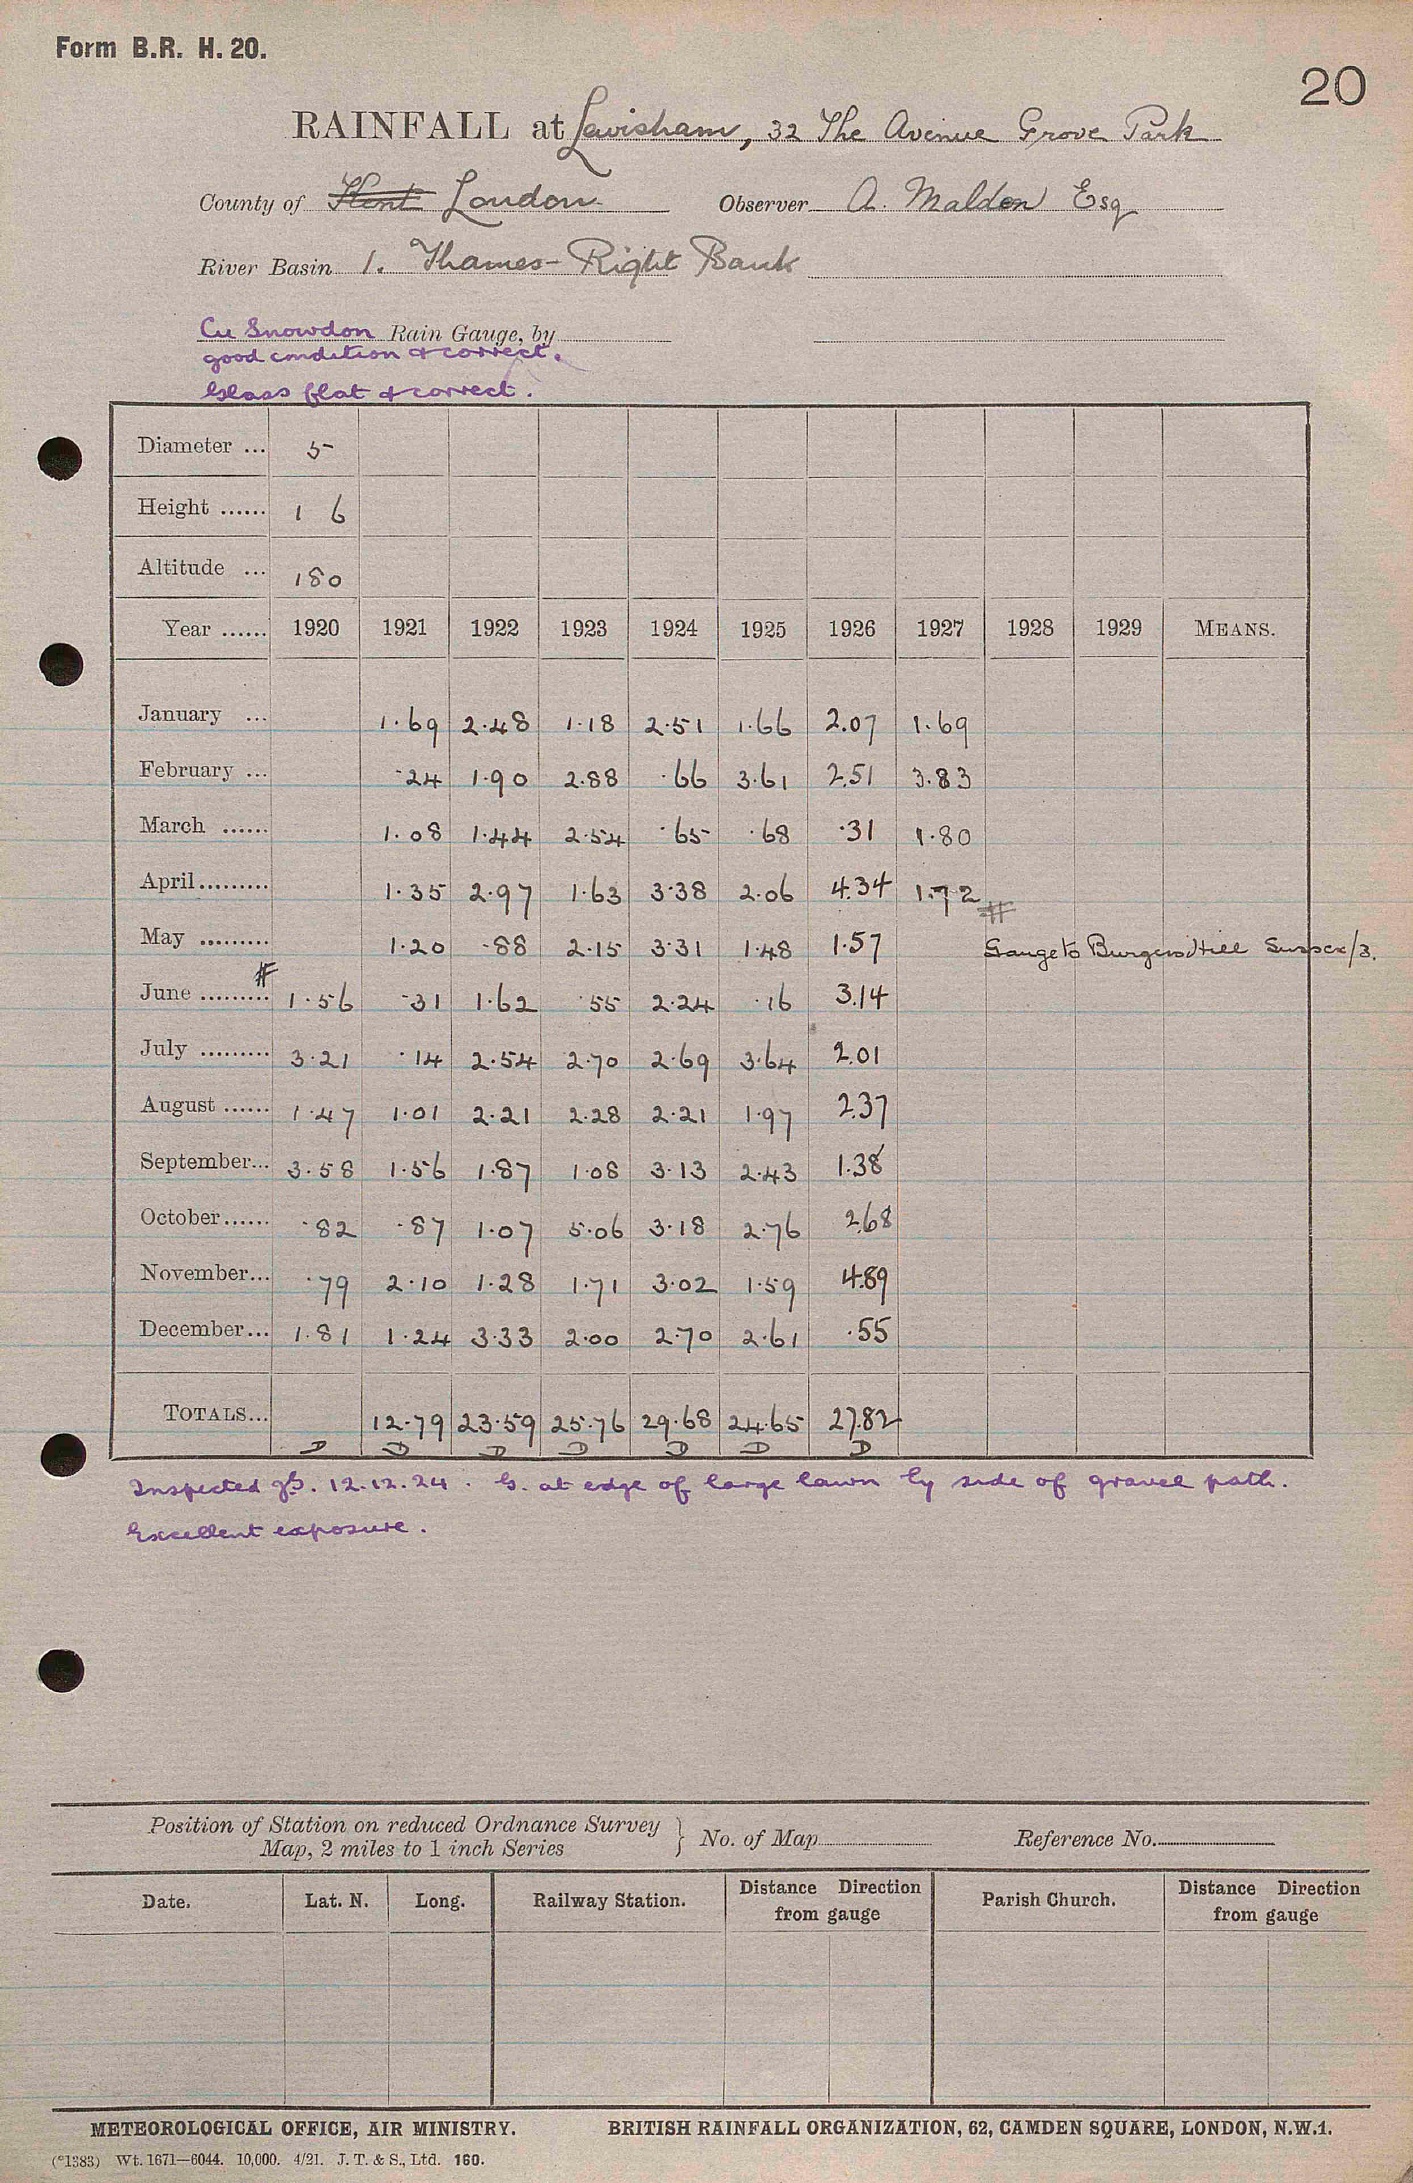 Form B.R. H. 20.
20
RAINFALL at Lewisham, 32 The Avenue Grove Park
County of Kent London Observer A. Malden Esq
River Basin 1. Thames - Right Bank
Cu Snowdon Rain Gauge, by
good condition & correct.
Glass flat & correct.
Diameter ... 5
Height ...... 1 6
Altitude ... 180
Year ...... 1920 1921 1922 1923 1924 1925 1926 1927 1928 1929 MEANS.
January ... 1.69 2.48 1.18 2.51 1.66 2.07 1.69
February ... .24 1.90 2.88 .66 3.61 2.51 3.83
March ...... 1.08 1.44 2.54 .65 .68 .31 1.80
April ......... 1.35 2.97 1.63 3.38 2.06 4.34 1.72 #
May ......... 1.20 .88 2.15 3.31 1.48 1.57 Gauge to Burgess Hill Sussex/3.
June ......... # 1.56 .31 1.62 .55 2.24 .16 3.14
July ......... 3.21 .14 2.54 2.70 2.69 3.64 2.01
August ...... 1.47 1.01 2.21 2.28 2.21 1.97 2.37
September... 3.58 1.56 1.87 1.08 3.13 2.43 1.38
October...... .82 .87 1.07 5.06 3.18 2.76 2.68
November... .79 2.10 1.28 1.71 3.02 1.59 4.89
December... 1.81 1.24 3.33 2.00 2.70 2.61 .55
TOTALS... 12.79 23.59 25.76 29.68 24.65 27.82
D D D D D D D
Inspected 12.12.24. G. at edge of large lawn by side of gravel path.
Excellent exposure.
Position of Station on reduced Ordnance Survey
Map, 2 miles to 1 inch Series } No. of Map Reference No.
Date. Lat. N. Long. Railway Station. Distance Direction from gauge Parish Church. Distance Direction from gauge
METEOROLOGICAL OFFICE, AIR MINISTRY. BRITISH RAINFALL ORGANIZATION, 62, CAMDEN SQUARE, LONDON, N.W.1.
(*1383) Wt. 1671—6044. 10,000. 4/21. J. T. & S., Ltd. 160.